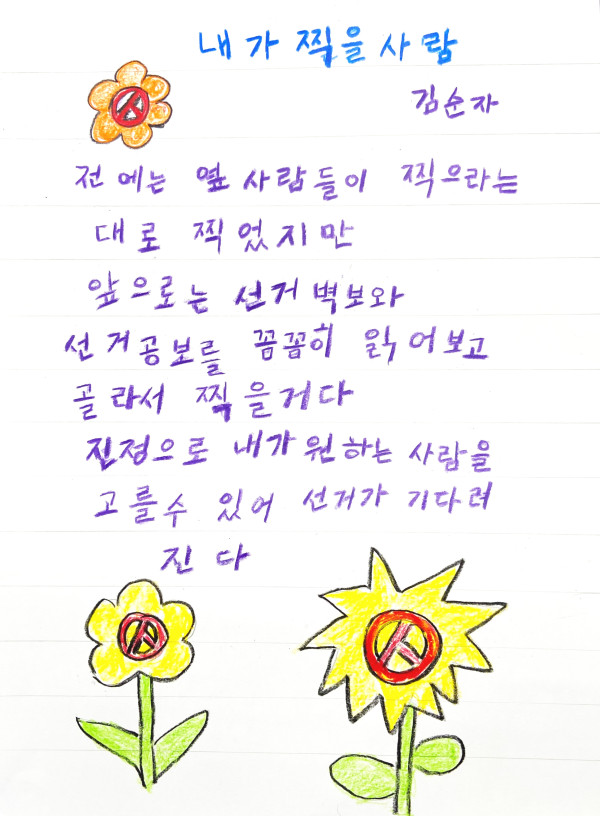 내가 찍을 사람
김순자
전에는 옆 사람들이 찍으라는
대로 찍었지만
앞으로는 선거 벽보와
선거공보를 꼼꼼히 읽어보고
골라서 찍을거다
진정으로 내가 원하는 사람을
고를수 있어 선거가 기다려
진다